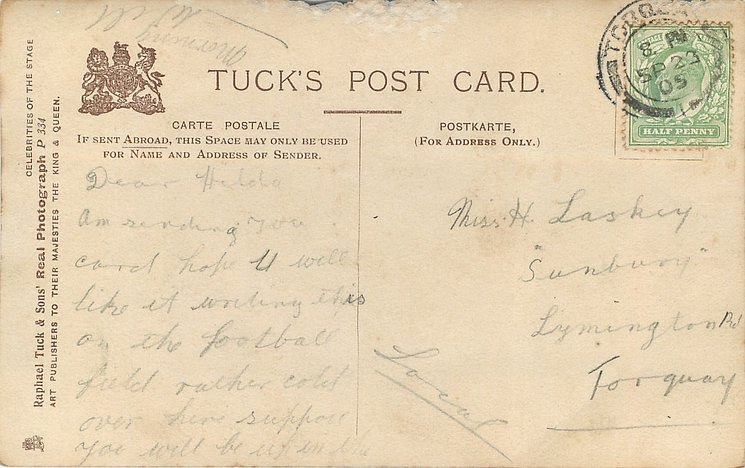 TUCK'S POST CARD.
CARTE POSTALE
IF SENT ABROAD, THIS SPACE MAY ONLY BE USED
FOR NAME AND ADDRESS OF SENDER.
POSTKARTE,
(FOR ADDRESS ONLY.)
CELEBRITIES OF THE STAGE
Raphael Tuck & Sons' Real Photograph P 334
ART PUBLISHERS TO THEIR MAJESTIES THE KING & QUEEN.
8 PM
SP 22
05
HALF PENNY
Dear Hilda
am sending you
card hope U will
like it writing this
on the football
field rather cold
over here suppose
you will be up in the
morning
Miss. H. Laskey
"Sunbury"
Lymington Rd
Torquay
Local